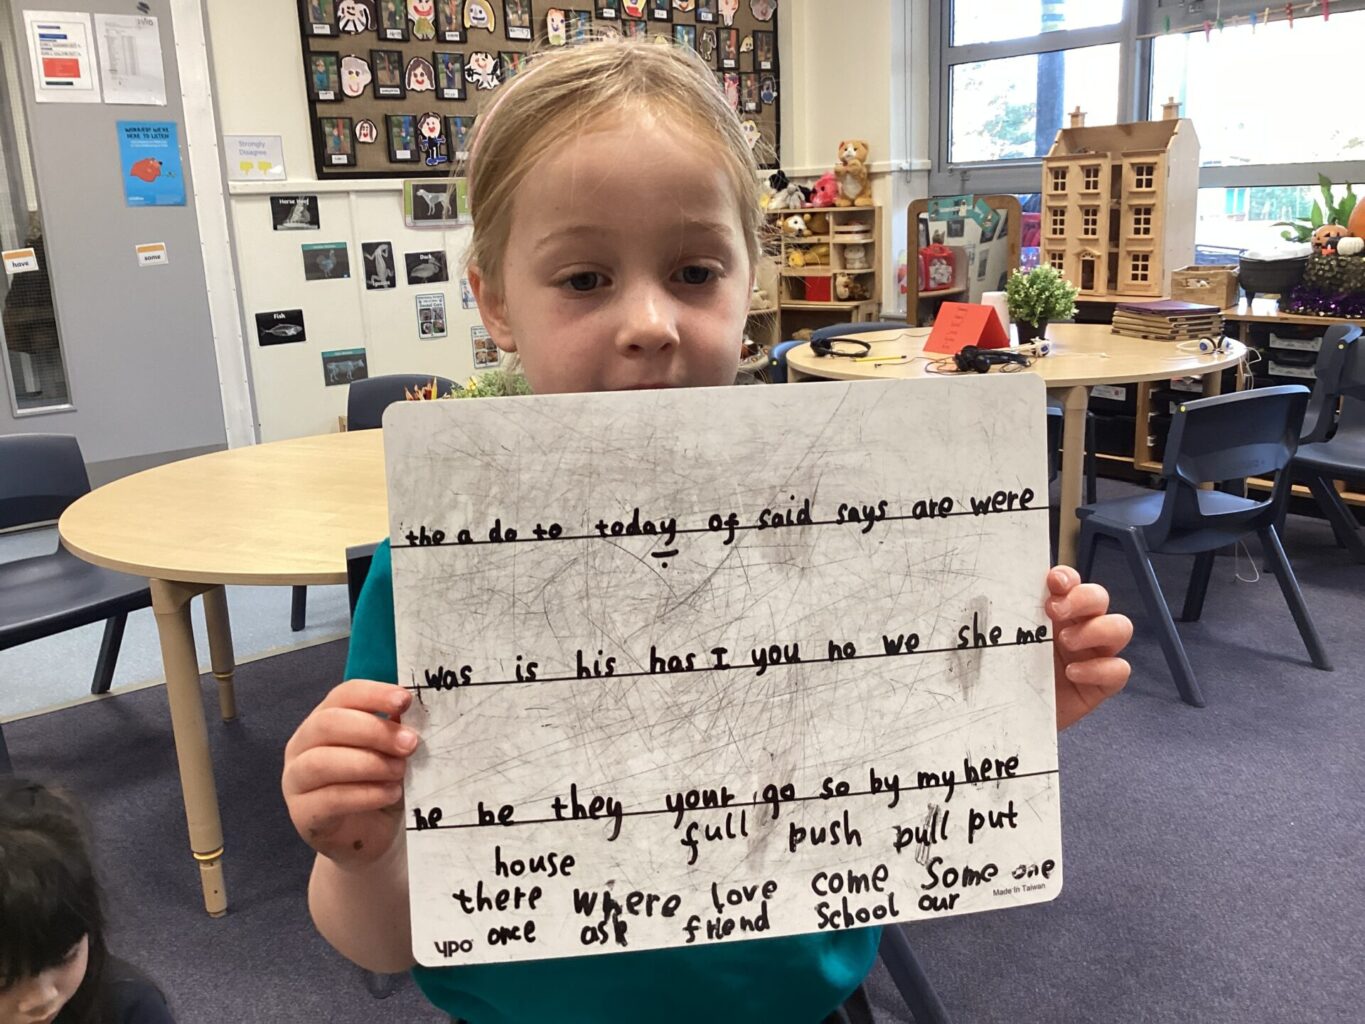 WORRIED? WE'RE
HERE TO LISTEN
Strongly
Disagree
have
some
Horse Hoof
Duck
Fish
the a do to today of said says are were
was is his has I you no we she me
he be they your go so by my here
full push pull put
house
there where love come some one
Made In Taiwan
once ask friend school our
YPO